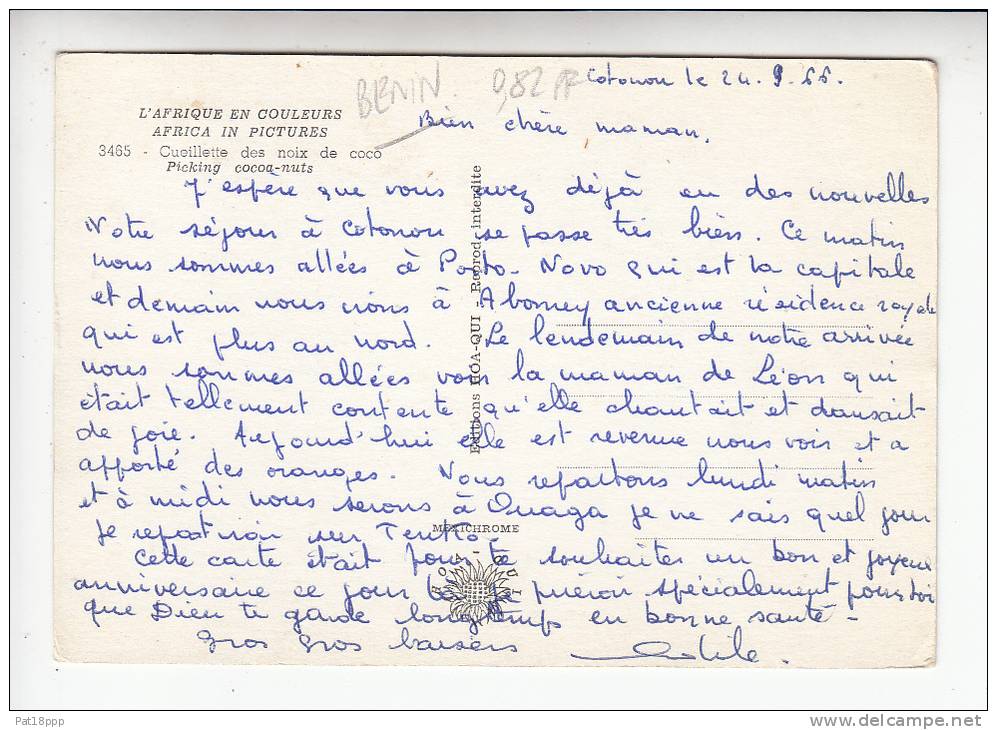 BENIN. 0,82
Cotonou le 24.9.66.
L'AFRIQUE EN COULEURS
AFRICA IN PICTURES
3465 - Cueillette des noix de coco
Picking cocoa-nuts
Bien chère maman,
J'espère que vous avez déjà eu des nouvelles
Notre séjour à Cotonou se passe très bien. Ce matin
nous sommes allées à Porto-Novo qui est la capitale
et demain nous irons à Abomey ancienne résidence royale
qui est plus au nord. Le lendemain de notre arrivée
nous sommes allées voir la maman de Léon qui
était tellement contente qu'elle chantait et dansait
de joie. Aujourd'hui elle est revenue nous voir et a
apporté des oranges. Nous repartons lundi matin
et à midi nous serons à Ouaga je ne sais quel jour
je repartirai sur
Cette carte était pour te souhaiter un bon et joyeux
anniversaire ce jour là je prierai spécialement pour toi
que Dieu te garde longtemps en bonne santé -
Gros gros baisers
Editions HOA-QUI - Reprod. interdite
MEXICHROME
HOA-QUI
Pat18ppp
www.delcampe.net